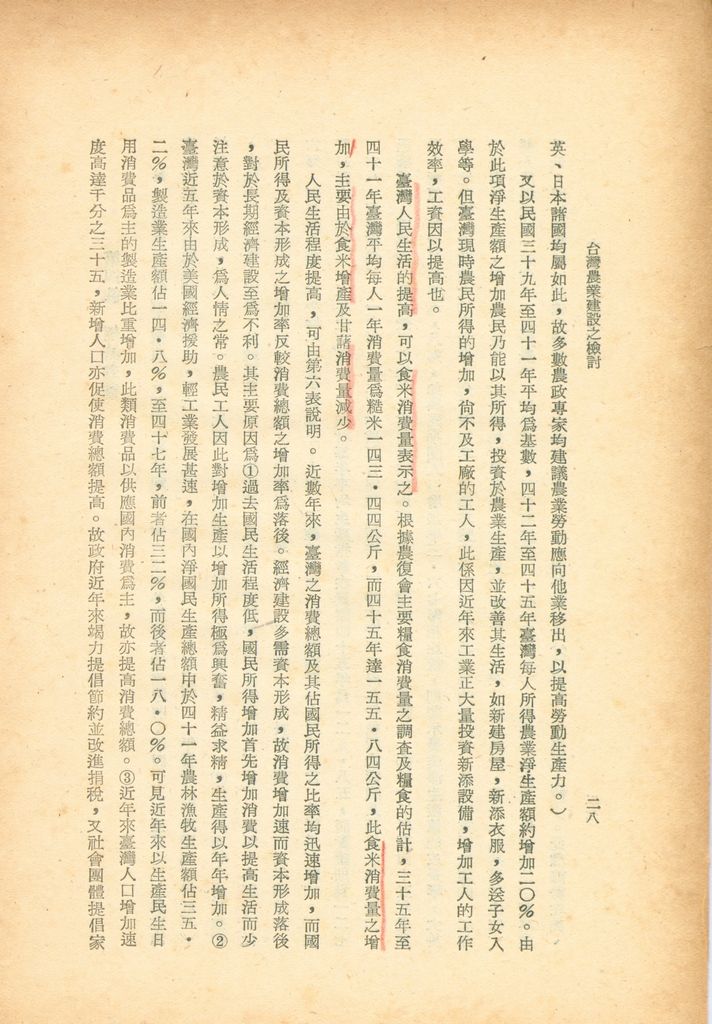 台灣農業建設之檢討
二八
英、日本諸國均屬如此，故多數農政專家均建議農業勞動應向他業移出，以提高勞動生產力。）
又以民國三十九年至四十一年平均爲基數，四十二年至四十五年臺灣每人所得農業淨生產額約增加二〇％。由
於此項淨生產額之增加農民乃能以其所得，投資於農業生產，並改善其生活，如新建房屋，新添衣服，多送子女入
學等。但臺灣現時農民所得的增加，尙不及工廠的工人，此係因近年來工業正大量投資新添設備，增加工人的工作
效率，工資因以提高也。
臺灣人民生活的提高，可以食米消費量表示之。根據農復會主要糧食消費量之調查及糧食的估計，三十五年至
四十一年臺灣平均每人一年消費量爲糙米一四三·四四公斤，而四十五年達一五五·八四公斤，此食米消費量之增
加，主要由於食米增產及甘藷消費量減少。
人民生活程度提高，可由第六表說明。近數年來，臺灣之消費總額及其佔國民所得之比率均迅速增加，而國
民所得及資本形成之增加率反較消費總額之增加率爲落後。經濟建設多需資本形成，故消費增加速而資本形成落後
，對於長期經濟建設至爲不利。其主要原因爲①過去國民生活程度低，國民所得增加首先增加消費以提高生活而少
注意於資本形成，爲人情之常。農民工人因此對增加生產以增加所得極爲興奮，精益求精，生產得以年年增加。②
臺灣近五年來由於美國經濟援助，輕工業發展甚速，在國內淨國民生產總額中於四十一年農林漁牧生產額佔三五·
二％，製造業生產額佔一四·八％，至四十七年，前者佔三二％，而後者佔一八·〇％。可見近年來以生產民生日
用消費品爲主的製造業比重增加，此類消費品以供應國內消費爲主，故亦提高消費總額。③近年來臺灣人口增加速
度高達千分之三十五，新增人口亦促使消費總額提高。故政府近年來竭力提倡節約並改進捐稅，又社會團體提倡家